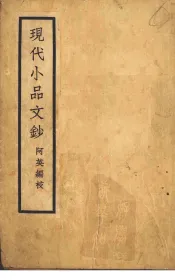 現代小品文鈔 阿英編校